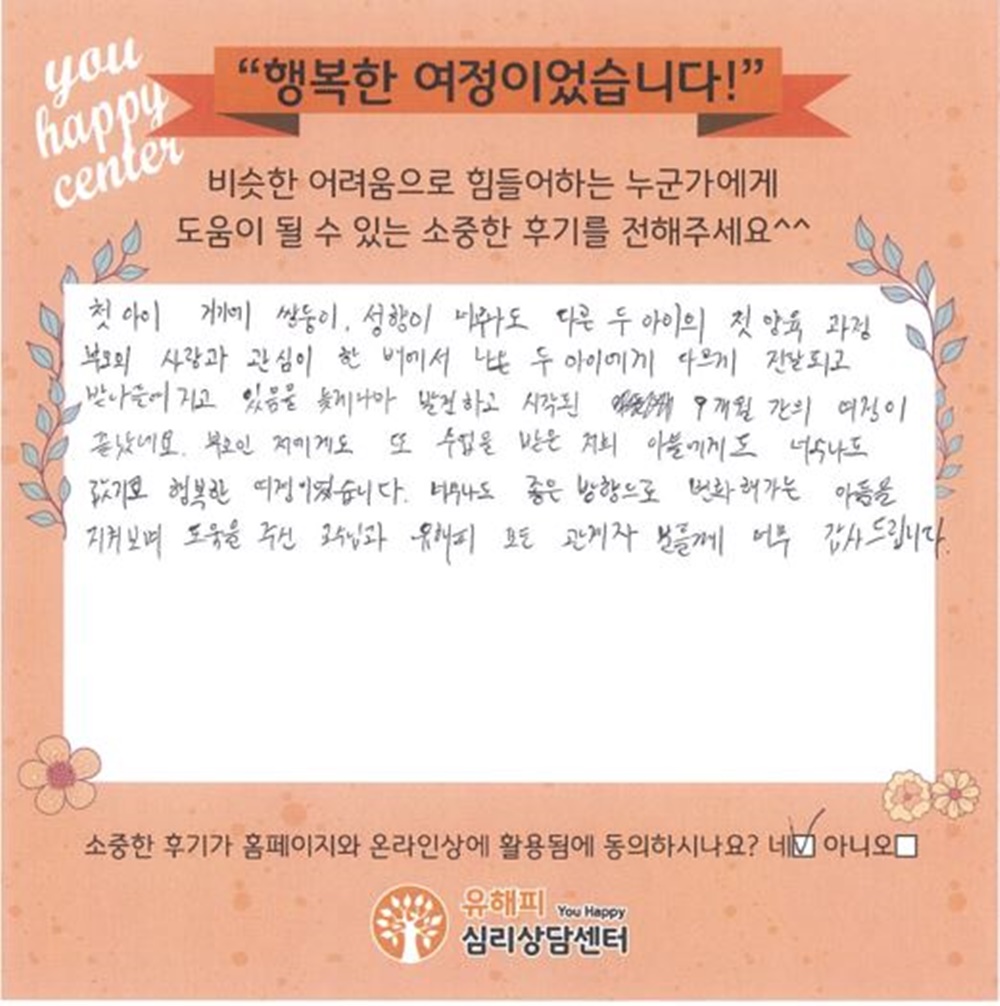 you
happy
center
“행복한 여정이었습니다!”
비슷한 어려움으로 힘들어하는 누군가에게
도움이 될 수 있는 소중한 후기를 전해주세요^^
첫 아이 거기에 쌍둥이. 성향이 너무나도 다른 두 아이의 첫 양육 과정
부모의 사랑과 관심이 한 배에서 나온 두 아이에게 다르게 전달되고
받아들여지고 있음을 늦게나마 발견하고 시작된 9개월 간의 여정이
끝났네요. 부모인 저에게도 또 수업을 받은 저희 아들에게도 너무나도
값지고 행복한 여정이었습니다. 너무나도 좋은 방향으로 변화해가는 아들을
지켜보며 도움을 주신 교수님과 유해피 모든 관계자 분들께 너무 감사드립니다.
소중한 후기가 홈페이지와 온라인상에 활용됨에 동의하시나요? 네 아니오
유해피 You Happy
심리상담센터